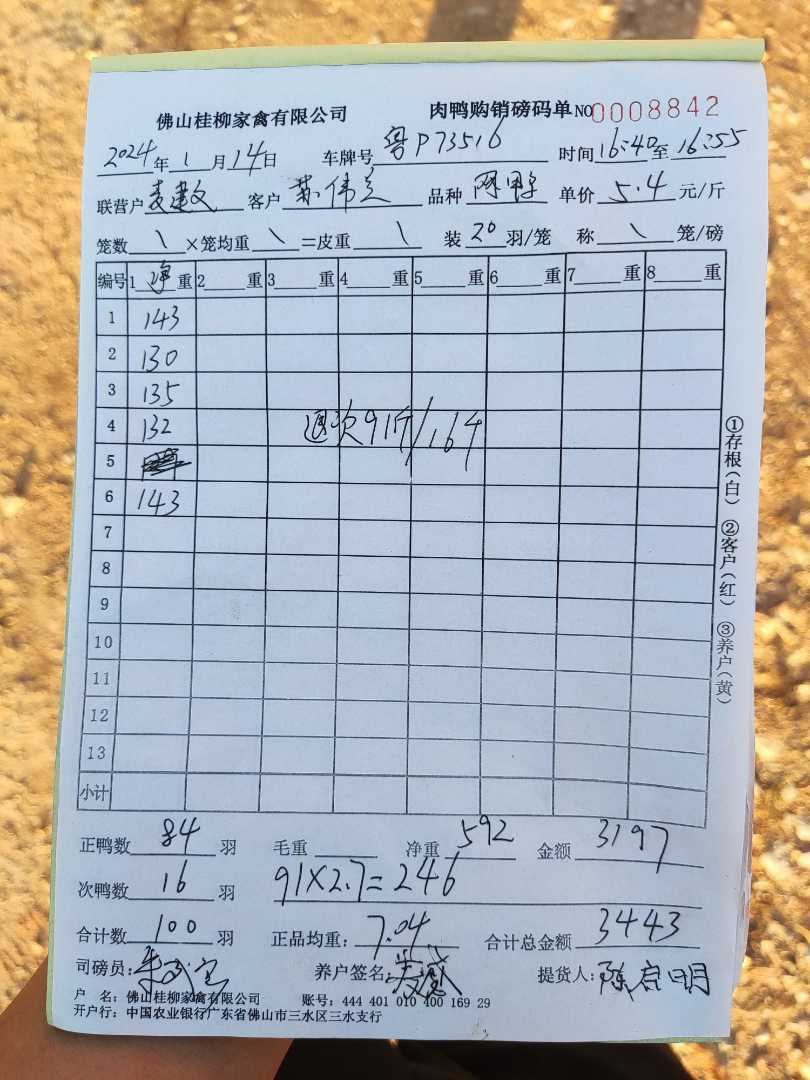 佛山桂柳家禽有限公司 肉鸭购销磅码单 NO 0008842
2024年 1月 14日 车牌号 粤P73516 时间 16:40 至 16:55
联营户 麦建文 客户 苏伟 品种 单价 5.4 元/斤
笼数 \ ×笼均重 \ =皮重 \ 装 20 羽/笼 称 \ 笼/磅
编号 1 净 重 2 重 3 重 4 重 5 重 6 重 7 重 8 重
1 143
2 130
3 135
4 132 退次91斤/16只
5
6 143
7
8
9
10
11
12
13
小计
①存根(白) ②客户(红) ③养户(黄)
正鸭数 84 羽 毛重 净重 592 金额 3197
次鸭数 16 羽 91×2.7=246
合计数 100 羽 正品均重: 7.04 合计总金额 3443
司磅员: 养户签名: 提货人: 陈启明
户 名: 佛山桂柳家禽有限公司 账号: 444 401 010 400 169 29
开户行: 中国农业银行广东省佛山市三水区三水支行